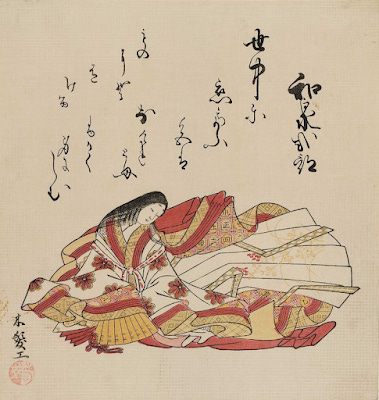 和泉式部
世中尓
恋てふ
色は
なけれとも
ふかく
身にしむ
もの
にそ
ける